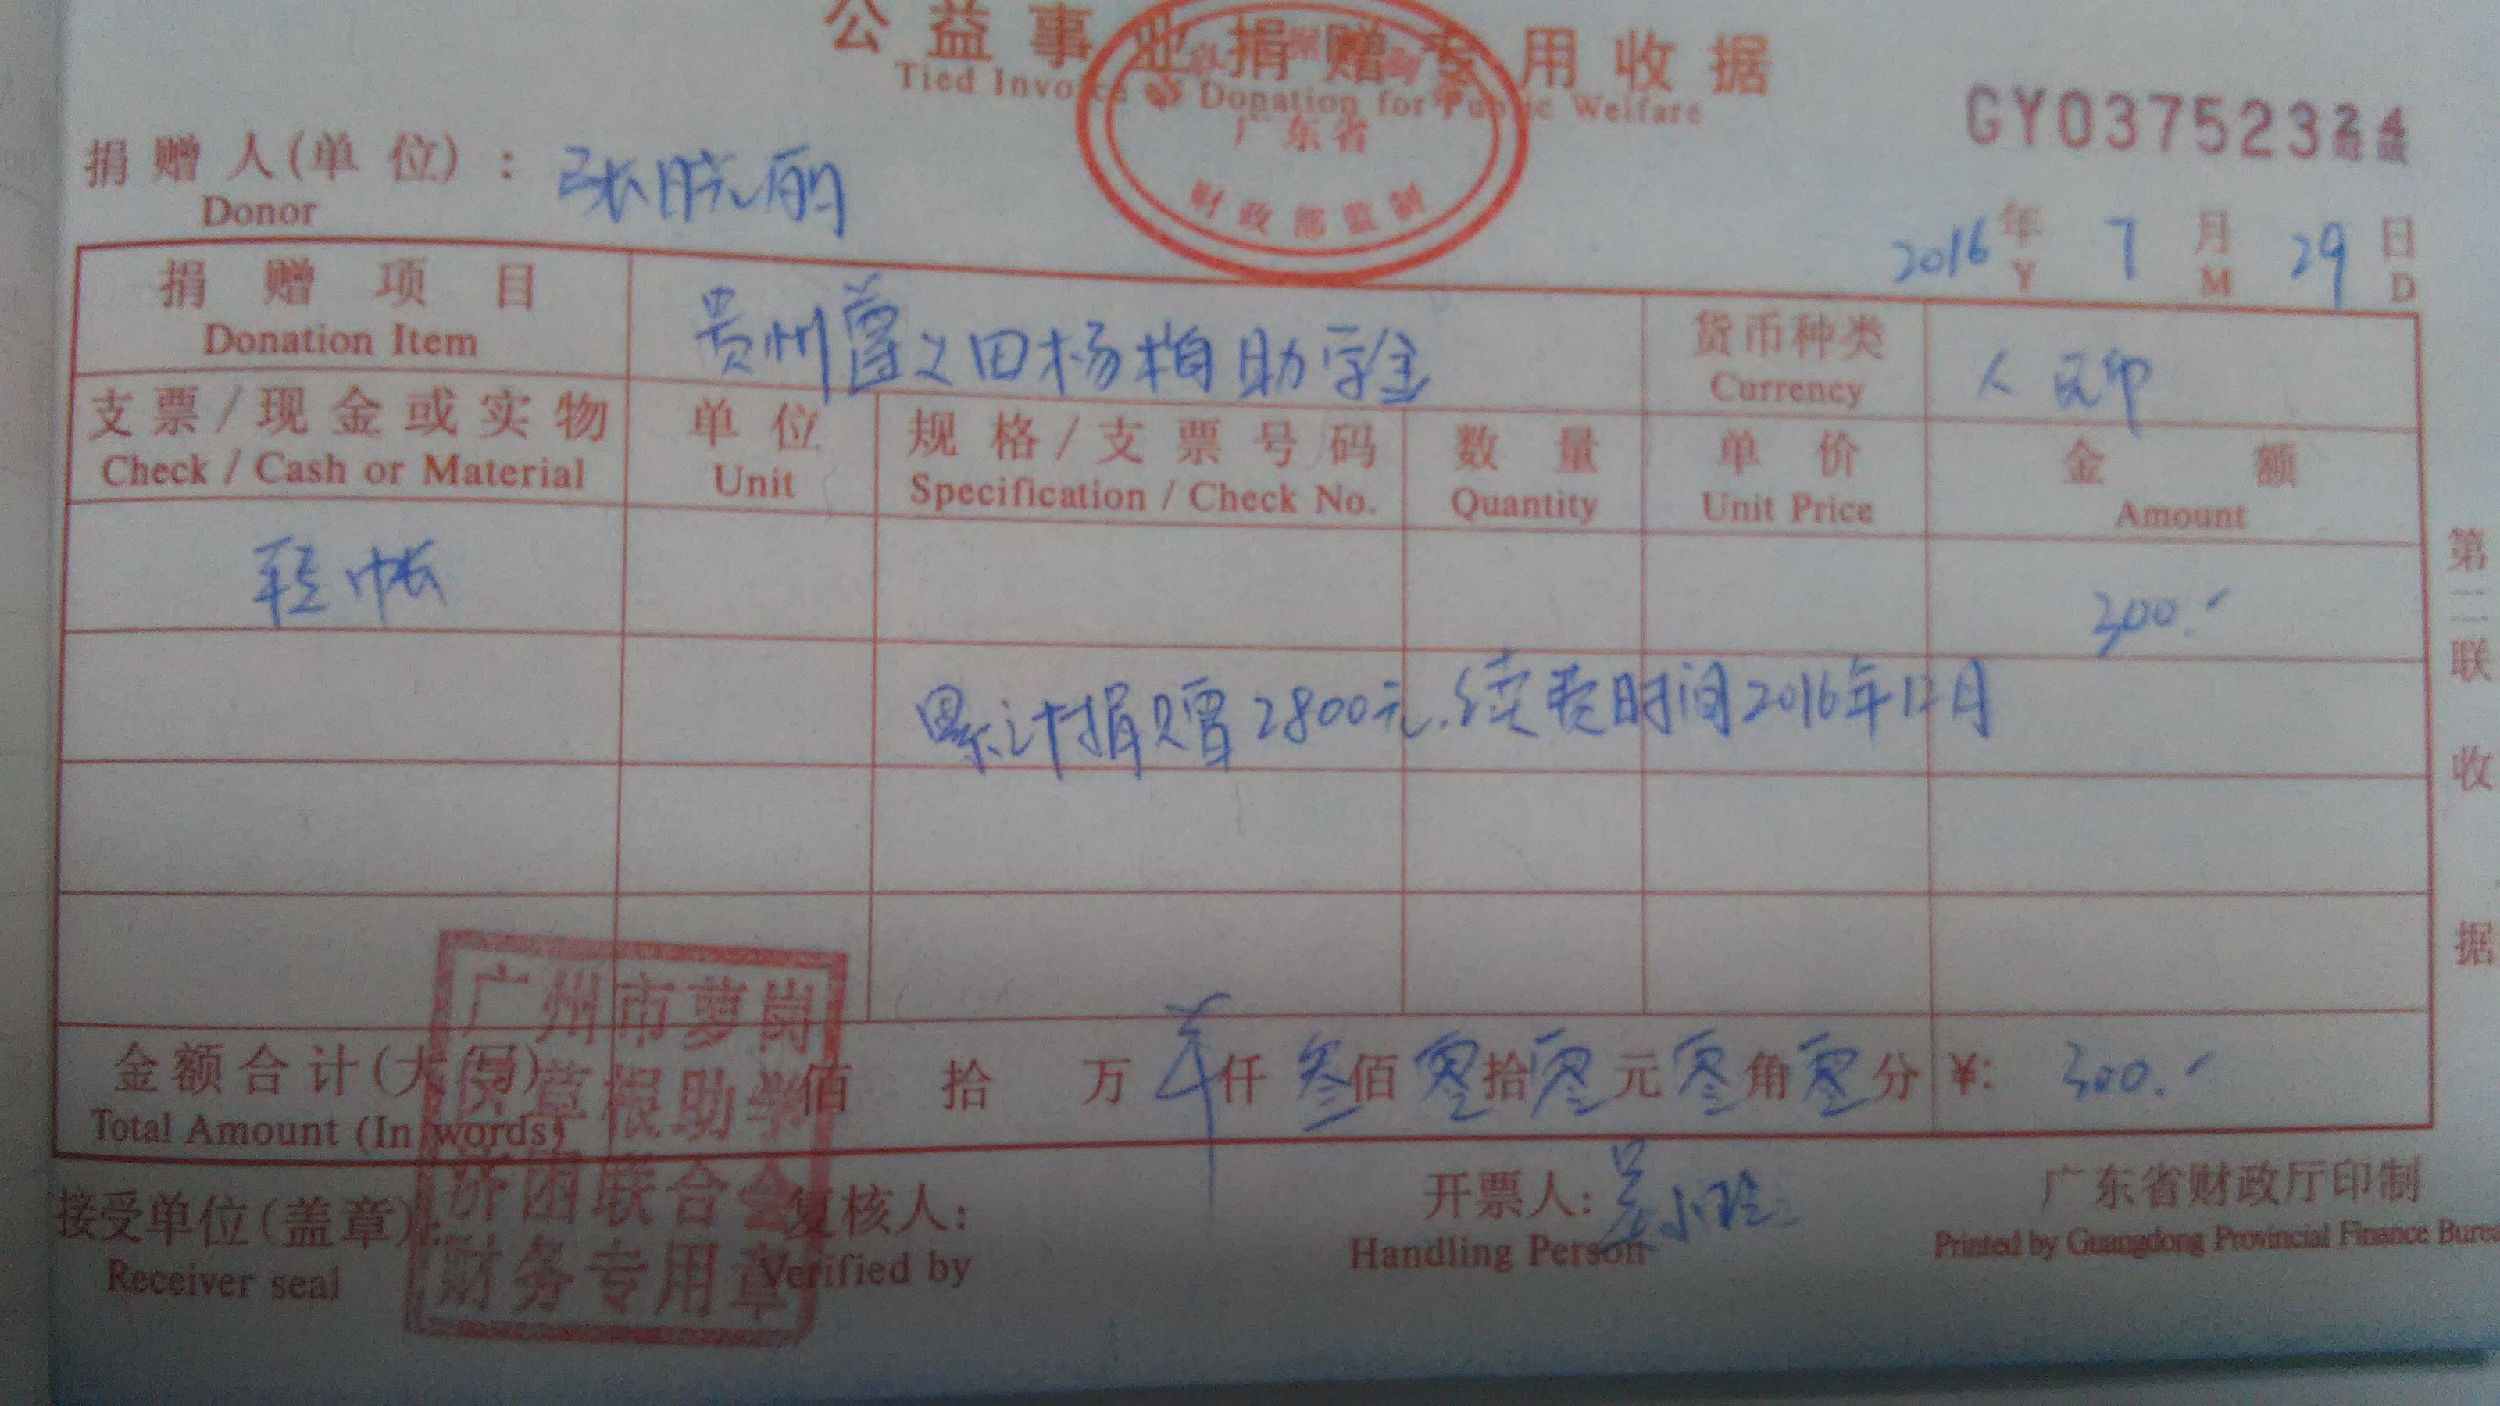 公益事业捐赠专用收据
Tied Invoice of Donation for Public Welfare
广东省
财政部监制
GY03752324
捐赠人(单位)：张晓丽
Donor
2016年7月29日
Y M D
捐赠项目 贵州遵义田杨柏助学金 货币种类 人民币
Donation Item Currency
支票/现金或实物 单位 规格/支票号码 数量 单价 金额
Check / Cash or Material Unit Specification / Check No. Quantity Unit Price Amount
转帐 300.-
累计捐赠2800元.续费时间2016年12月
金额合计(大写) 佰 拾 万 仟叁佰零拾零元零角零分 ¥: 300.-
Total Amount (In words)
接受单位(盖章): 复核人: 开票人: 吴小玲 广东省财政厅印制
Receiver seal Verified by Handling Person Printed by Guangdong Provincial Finance Burea
广州市萝岗
区草根助学
济困联合会
财务专用章
第二联收据